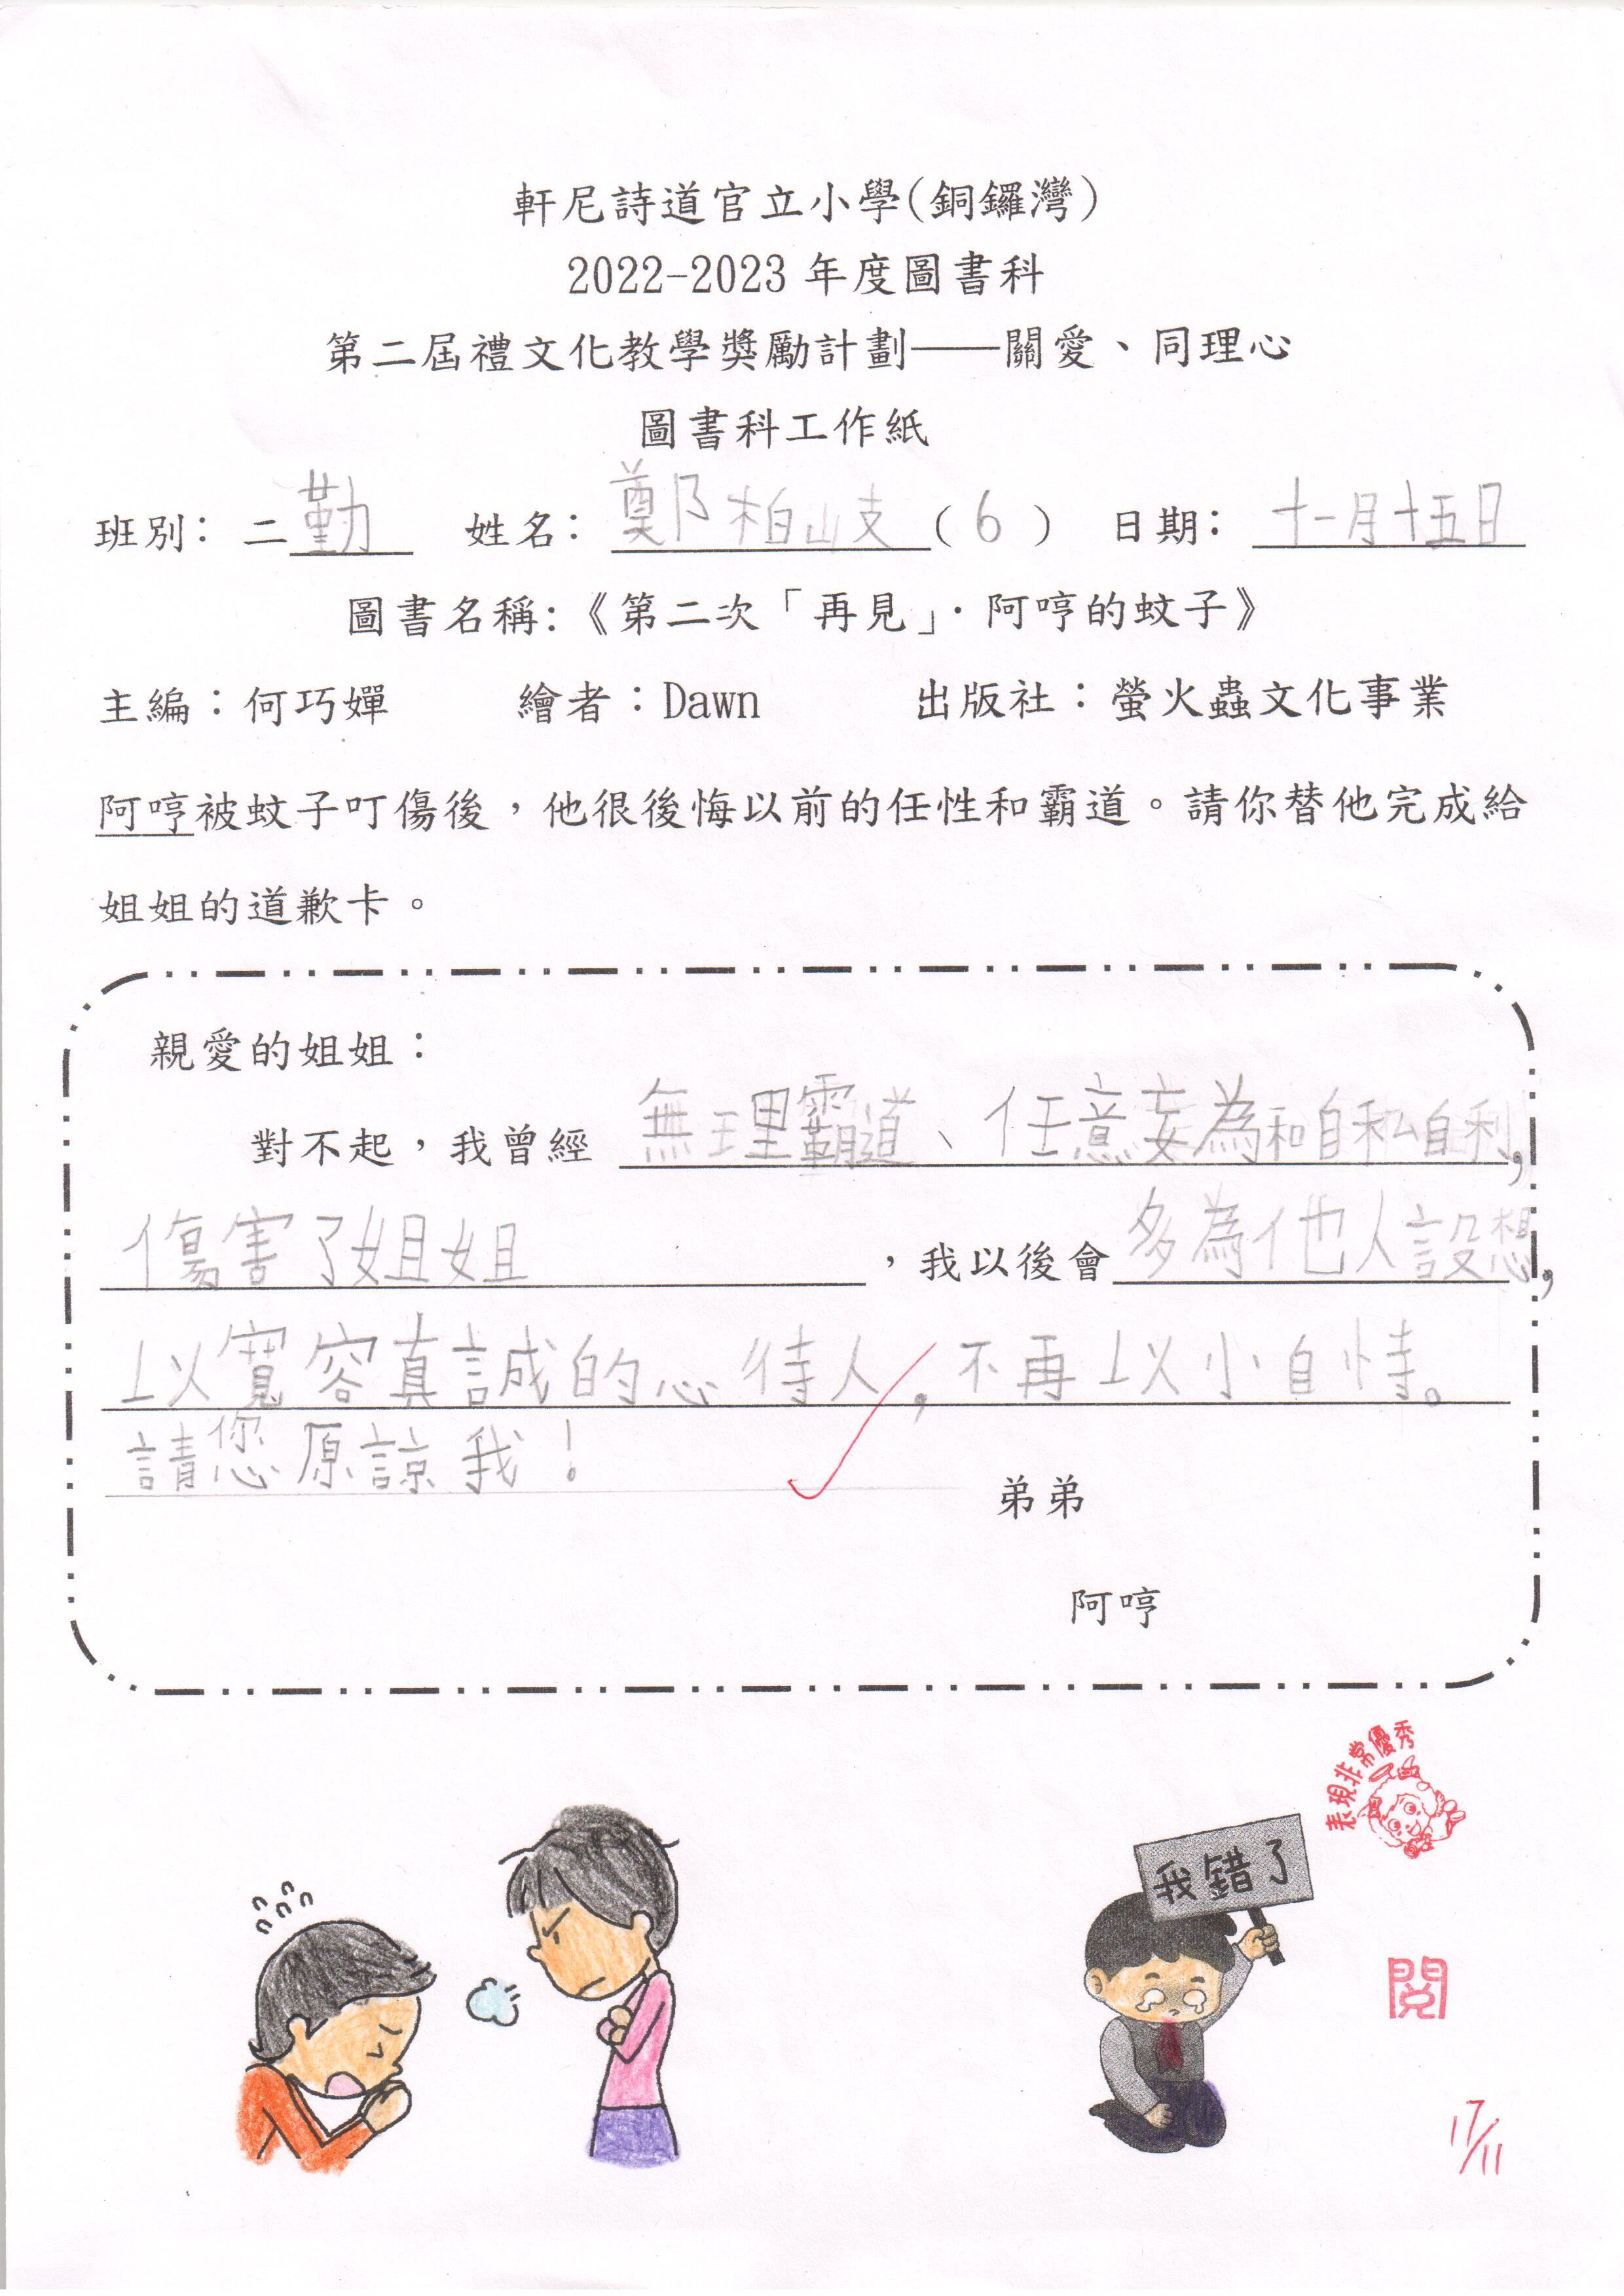 軒尼詩道官立小學(銅鑼灣)
2022-2023 年度圖書科
第二屆禮文化教學獎勵計劃——關愛、同理心
圖書科工作紙
班別：二勤 姓名：鄭柏岐(6) 日期：十一月十五日
圖書名稱:《第二次「再見」·阿哼的蚊子》
主編：何巧嬋 繪者：Dawn 出版社：螢火蟲文化事業
阿哼被蚊子叮傷後，他很後悔以前的任性和霸道。請你替他完成給
姐姐的道歉卡。
親愛的姐姐：
對不起，我曾經 無理霸道、任意妄為和自私自利，
傷害了姐姐，我以後會多為他人設想，
以寬容真誠的心待人，不再以小自恃。
請您原諒我！
弟弟
阿哼
表現非常優秀
我錯了
閱
17/11